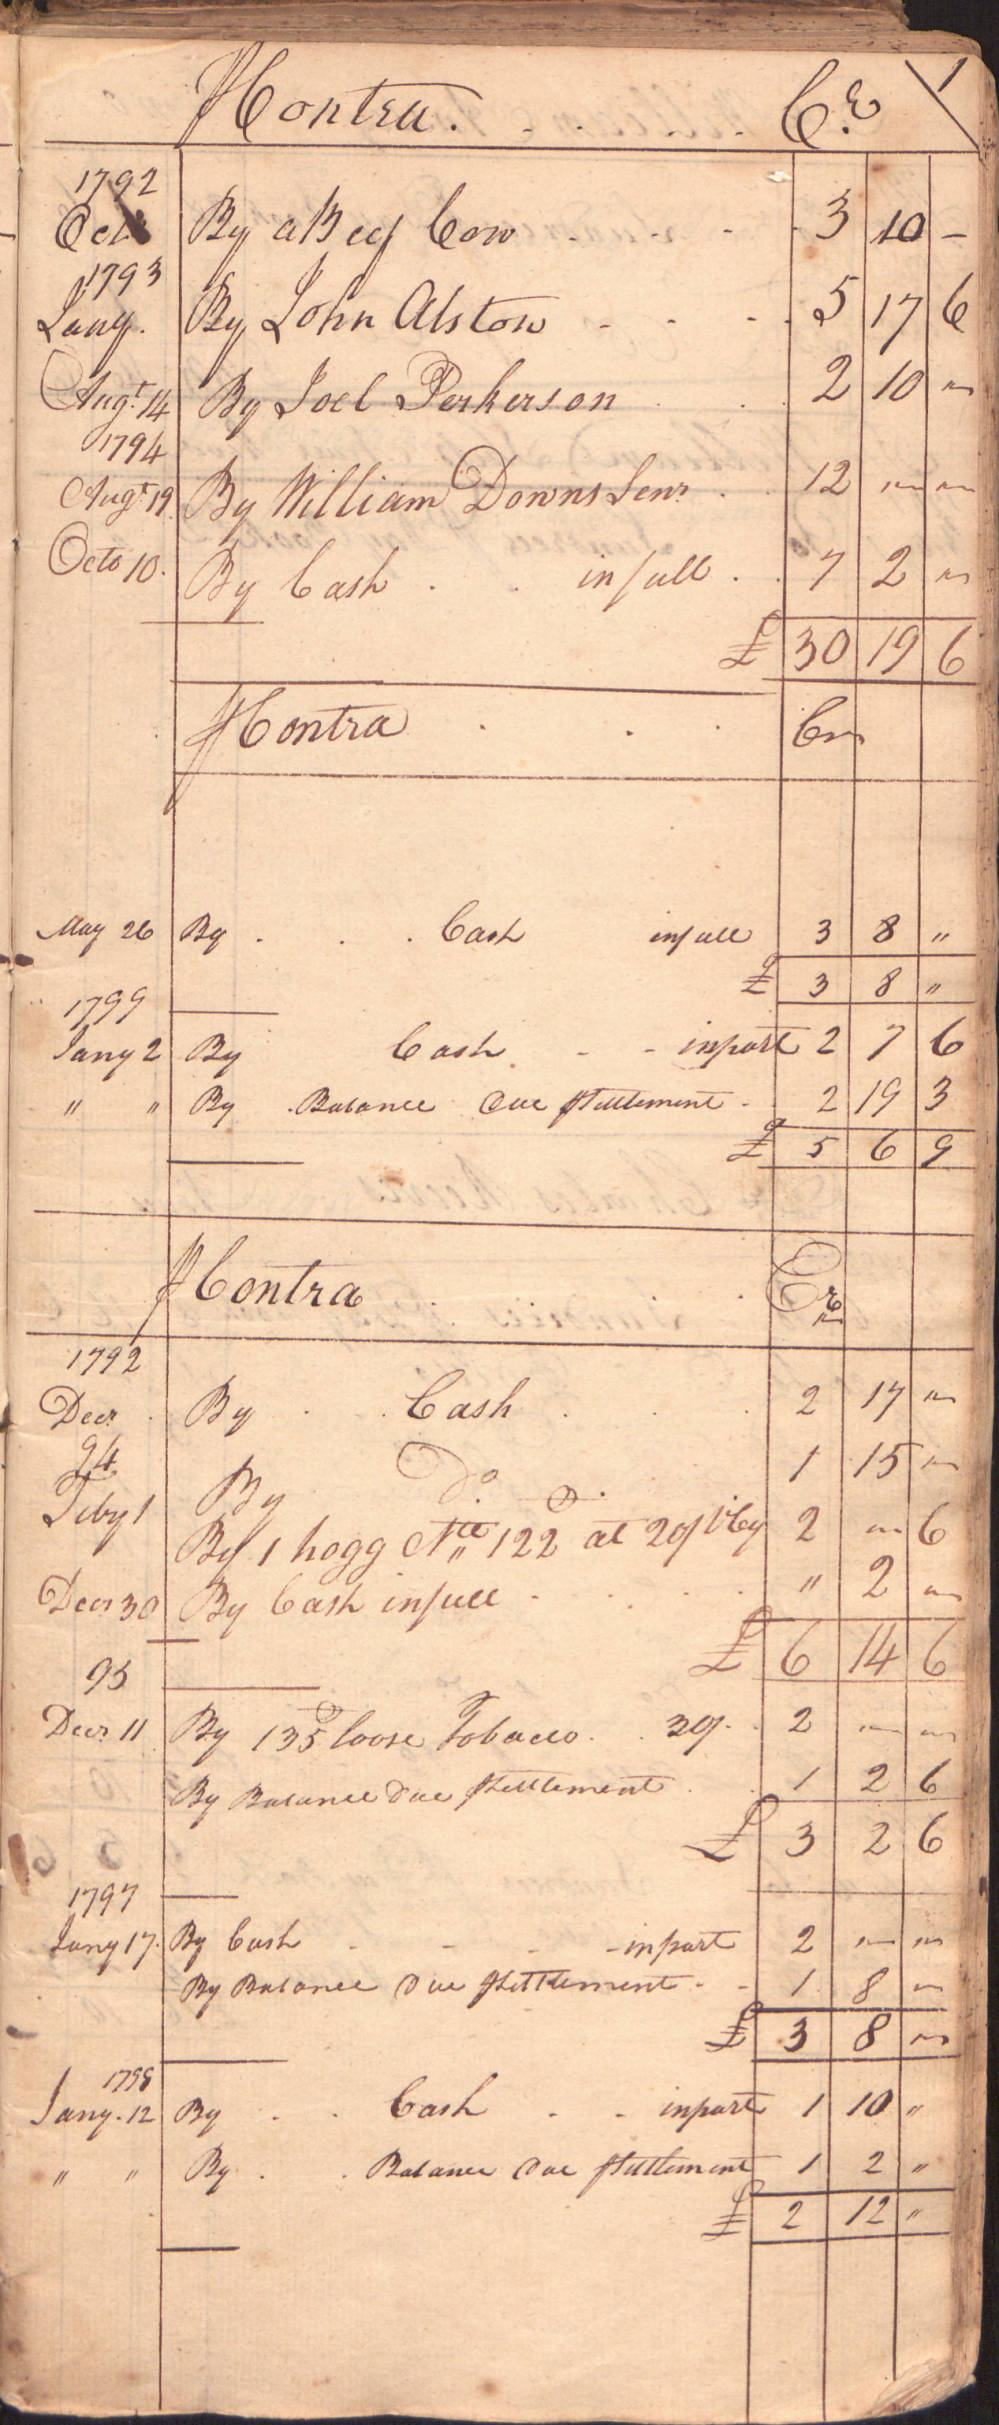 Contra. . . . Cr. 1
1792
Octr By a Beef Cow - - - 3 10 -
1793
Jany. By John Alston - - - 5 17 6
Augt. 14 By Joel Perkerson . . 2 10 "
1794
Augt 19. By William Downs Senr . . 12 " "
Octo 10. By Cash . . in full . . 7 2 "
£ 30 19 6
Contra . . . Cr
May 26 By . . . Cash in full 3 8 "
£ 3 8 "
1799
Jany 2 By Cash - - in part 2 7 6
" " By . Balance Due Settlement - 2 19 3
£ 5 6 9
Contra . . . Cr
1792
Decr . By . . . Cash . . . 2 17 "
94
Feby 1 By Do. . 1 15 "
By 1 hogg Ntt 122 at 20/ 2 " 6
Decr 30 By Cash in full . . . . " 2 "
£ 6 14 6
95
Decr 11 By 135 loose Tobacco . . 30/. . 2 " "
By Balance Due Settlement . . 1 2 6
£ 3 2 6
1797
Jany 17. By Cash - - - - in part 2 " "
By Balance Due Settlement - - 1 8 "
£ 3 8 "
1798
Jany. 12 By . . Cash - - in part 1 10 "
" " By . . Balance Due Settlement 1 2 "
£ 2 12 "